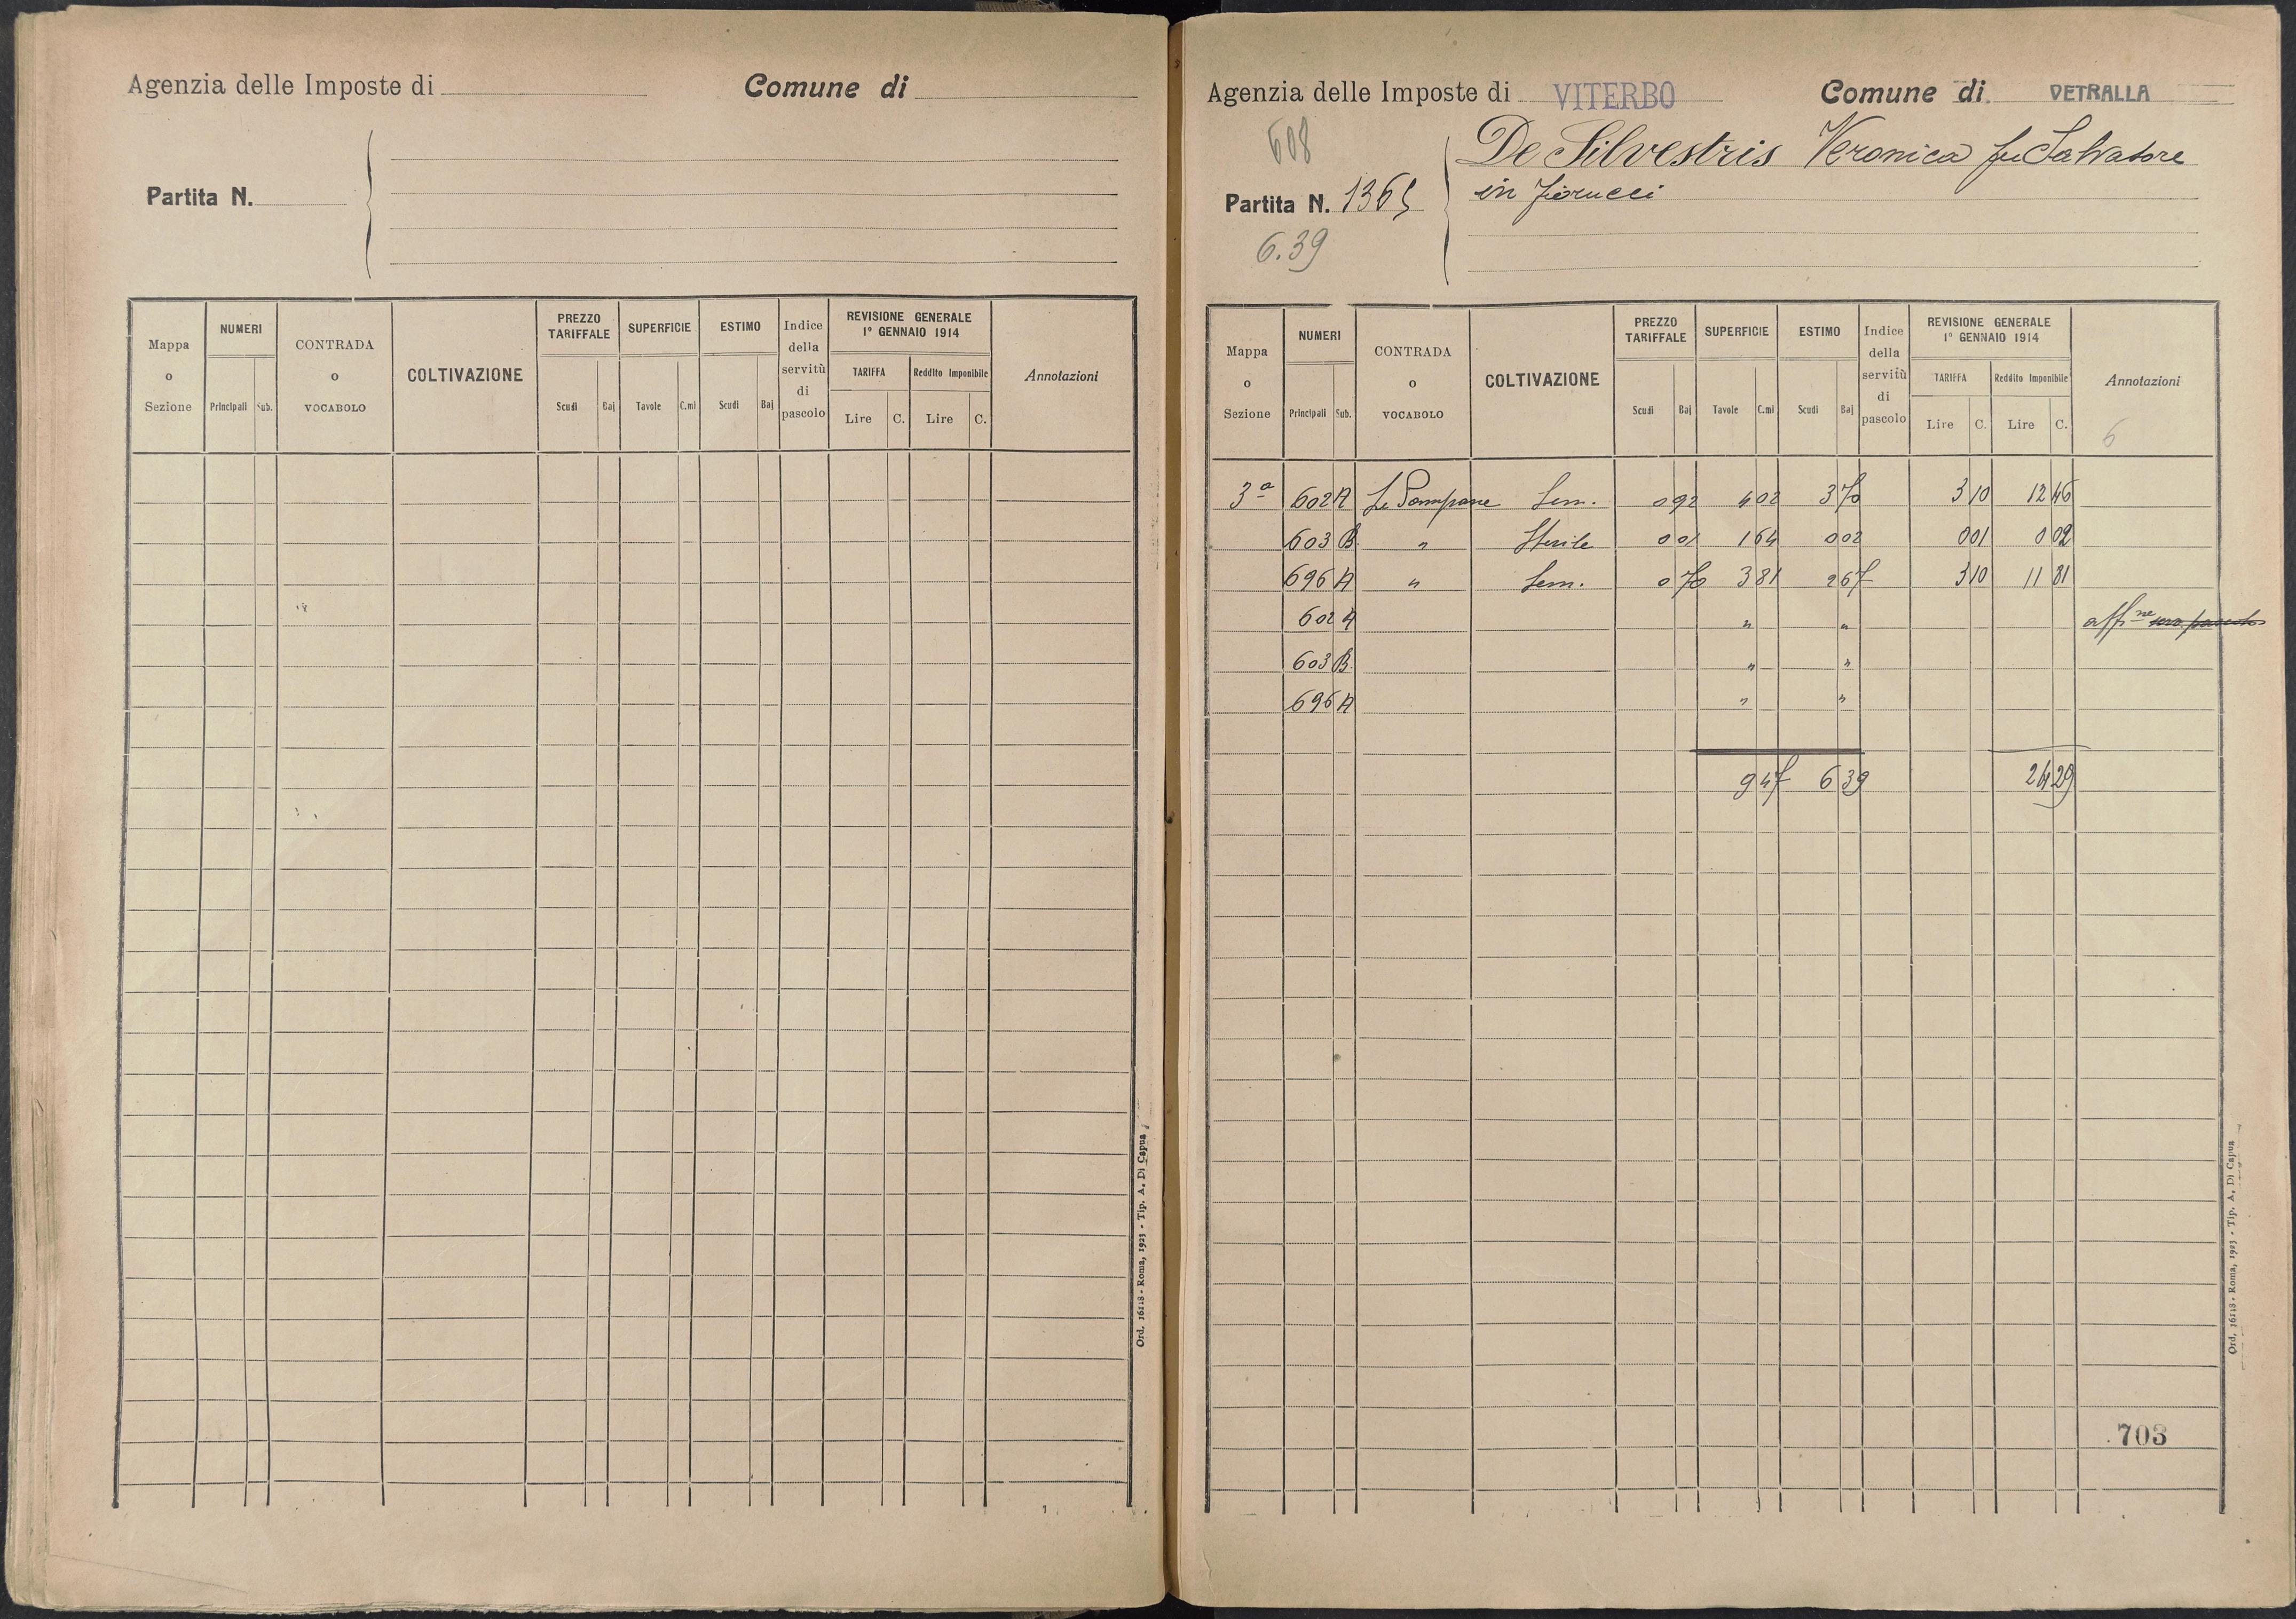 Agenzia delle Imposte di Comune di
Partita N.
Mappa o Sezione NUMERI Principali Sub. CONTRADA o VOCABOLO COLTIVAZIONE PREZZO TARIFFALE Scudi Baj SUPERFICIE Tavole C.mi ESTIMO Scudi Baj Indice della servitù di pascolo REVISIONE GENERALE 1° GENNAIO 1914 TARIFFA Lire C. Reddito Imponibile Lire C. Annotazioni
Ord. 16118 - Roma, 1923 - Tip. A. Di Capua
Agenzia delle Imposte di VITERBO Comune di VETRALLA
608
De Silvestris Veronica fu Salvatore
Partita N. 1365
in Fiorucci
6.39
Mappa o Sezione NUMERI Principali Sub. CONTRADA o VOCABOLO COLTIVAZIONE PREZZO TARIFFALE Scudi Baj SUPERFICIE Tavole C.mi ESTIMO Scudi Baj Indice della servitù di pascolo REVISIONE GENERALE 1° GENNAIO 1914 TARIFFA Lire C. Reddito Imponibile Lire C. Annotazioni
6
3ª 602 A Le Pompane Sem. 0 92 4 02 3 70 3 10 12 46
603 B " Sterile 0 01 1 64 0 02 0 01 0 02
696 A " Sem. 0 70 3 81 2 67 3 10 11 81
602 A " " aff.ne
603 B " "
696 A " "
9 47 6 39 24 29
703
Ord. 16118 - Roma, 1923 - Tip. A. Di Capua